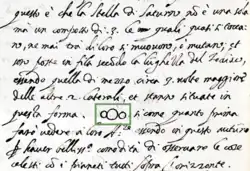 questo è che la stella di Saturno nō è una sta
ma un composto di .3. le quali quasi si tocca-
no, ne mai trà di loro si muovono, o mutano; et
sono poste in fila secondo la lunghezza del zodiaco,
essendo quella di mezo circa .3. volte maggiore
delle altre .2. laterali, et stanno situate in
questa forma oOo si come quanto prima
farò vedere a loro essendo in questo autunno
haver comodità di osservare le cose
celesti cō i pianeti tutti sopra l'orizonte.